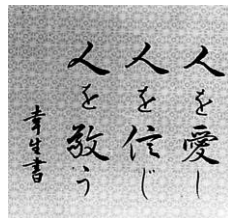 人を愛し
人を信じ
人を敬う
幸生書